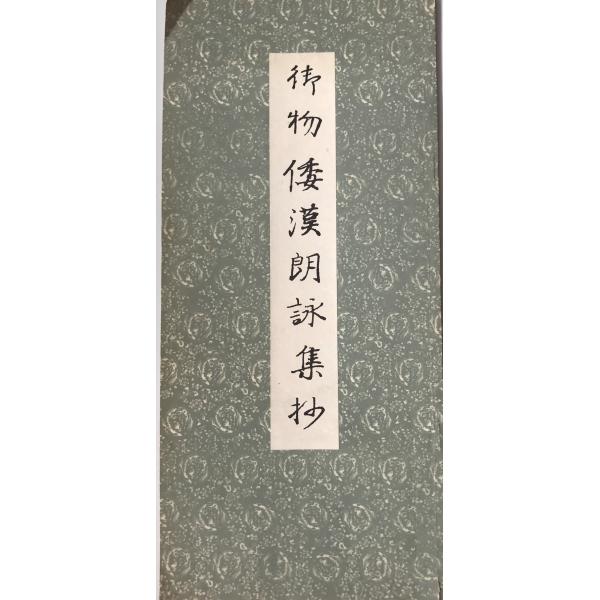 御物倭漢朗詠集抄